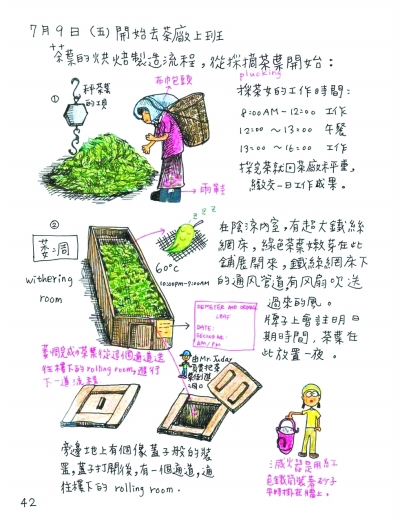 7月9日 (五) 開始去茶廠上班
茶葉的烘焙製造流程，從採摘茶葉開始：
plucking
布巾包頭
秤茶葉
的工頭
①
採茶女的工作時間：
8:00AM~12:00 工作
12:00 ~ 13:00 午餐
13:00 ~ 16:00 工作
採完茶就回茶廠秤重，
繳交一日工作成果。
雨鞋
②
萎凋
withering
room
60°C
10:00PM~9:00AM
z z z
在陰涼內室，有超大鐵絲
網床，綠色茶葉嫩芽在此
鋪展開來，鐵絲網床下
的通風管道有風扇吹送
過來的風。
牌子上會註明日
期時間，茶葉在
此放置一夜。
LEAF
DATE:
AM/PM
萎凋完成的茶葉從這個通道送
往樓下的rolling room，進行
下一道流程
由Mr. Juday
旁邊地上有個像蓋子般的裝
置，蓋子打開後，有一個通道，通
往樓下的 rolling room.
滅火器是用紅
色鐵筒裝著砂子
平時掛在牆上。
42